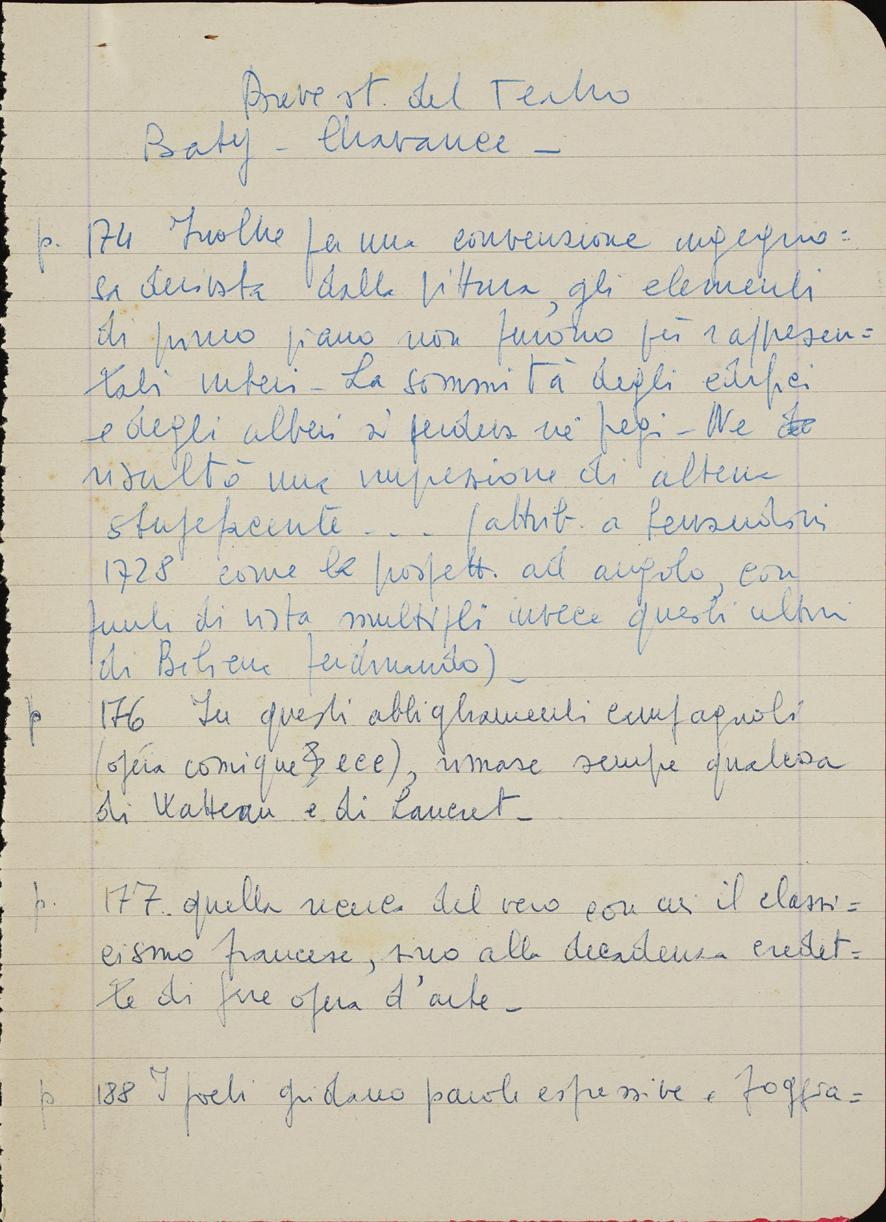 Breve st. del Teatro
Baty - Chavance -
p. 174 Inoltre per una convenzione ingegno=
sa derivata dalla pittura, gli elementi
di primo piano non furono più rappresen=
tati interi - La sommità degli edifici
e degli alberi si perdeva nei fregi - Ne
risultò una impressione di altezza
stupefacente . . . (attrib. a Servandoni
1728 come le prospett. ad angolo, con
punti di vista multipli invece questi ultimi
di Bibiena Ferdinando) -
p 176 In questi abbigliamenti campagnoli
(opéra comique ecc), rimase sempre qualcosa
di Watteau e di Lancret -
p. 177. quella ricerca del vero con cui il classi=
cismo francese, sino alla decadenza credet=
te di fare opera d'arte -
p 188 I poeti gridano parole espressive e foggia=